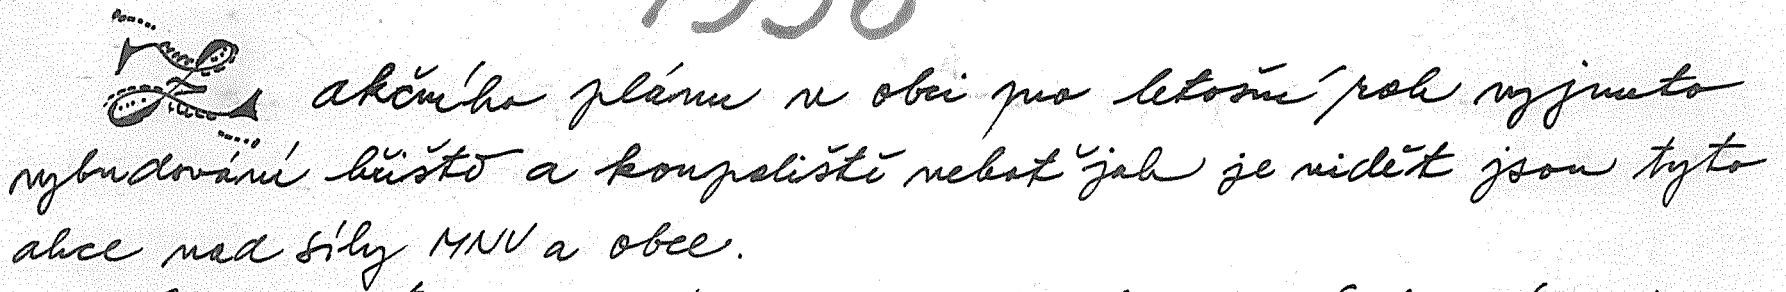 Z akčního plánu v obci pro letošní rok vyjmuto
vybudování hřiště a koupaliště neboť jak je vidět jsou tyto
akce nad síly MNV a obce.